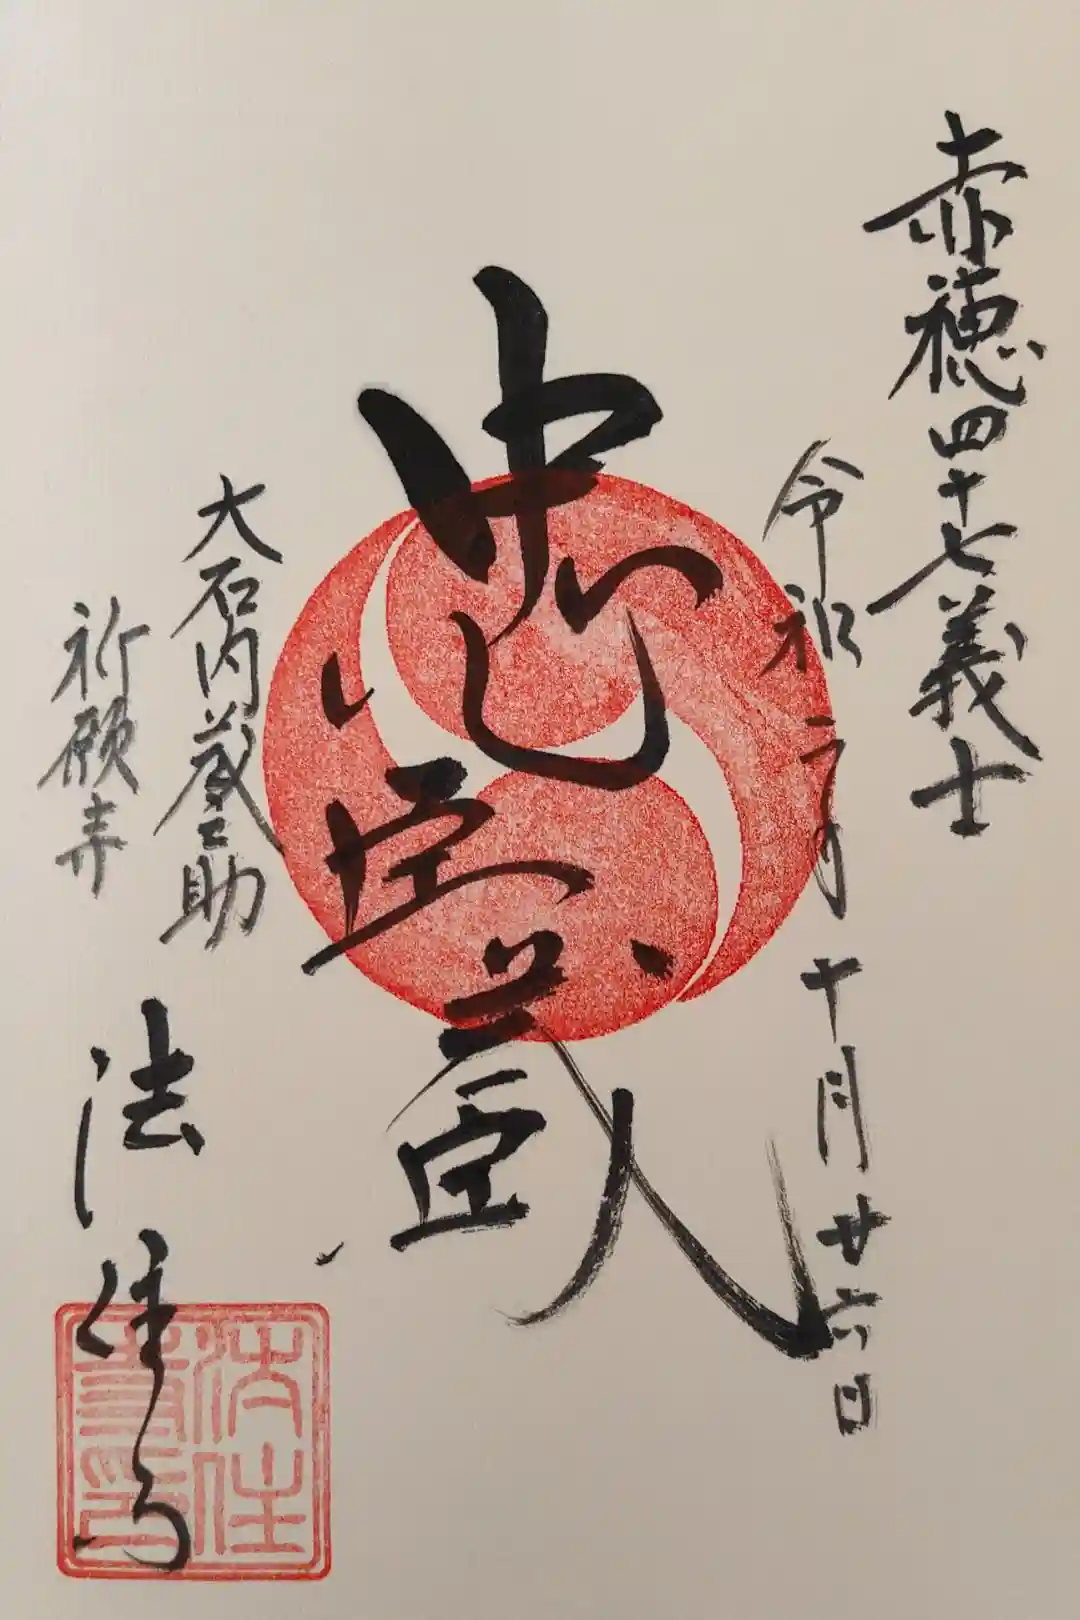 赤穂四十七義士
令和二年十月廿六日
忠臣蔵
大石内蔵助
祈願寺
法住寺
法住寺印